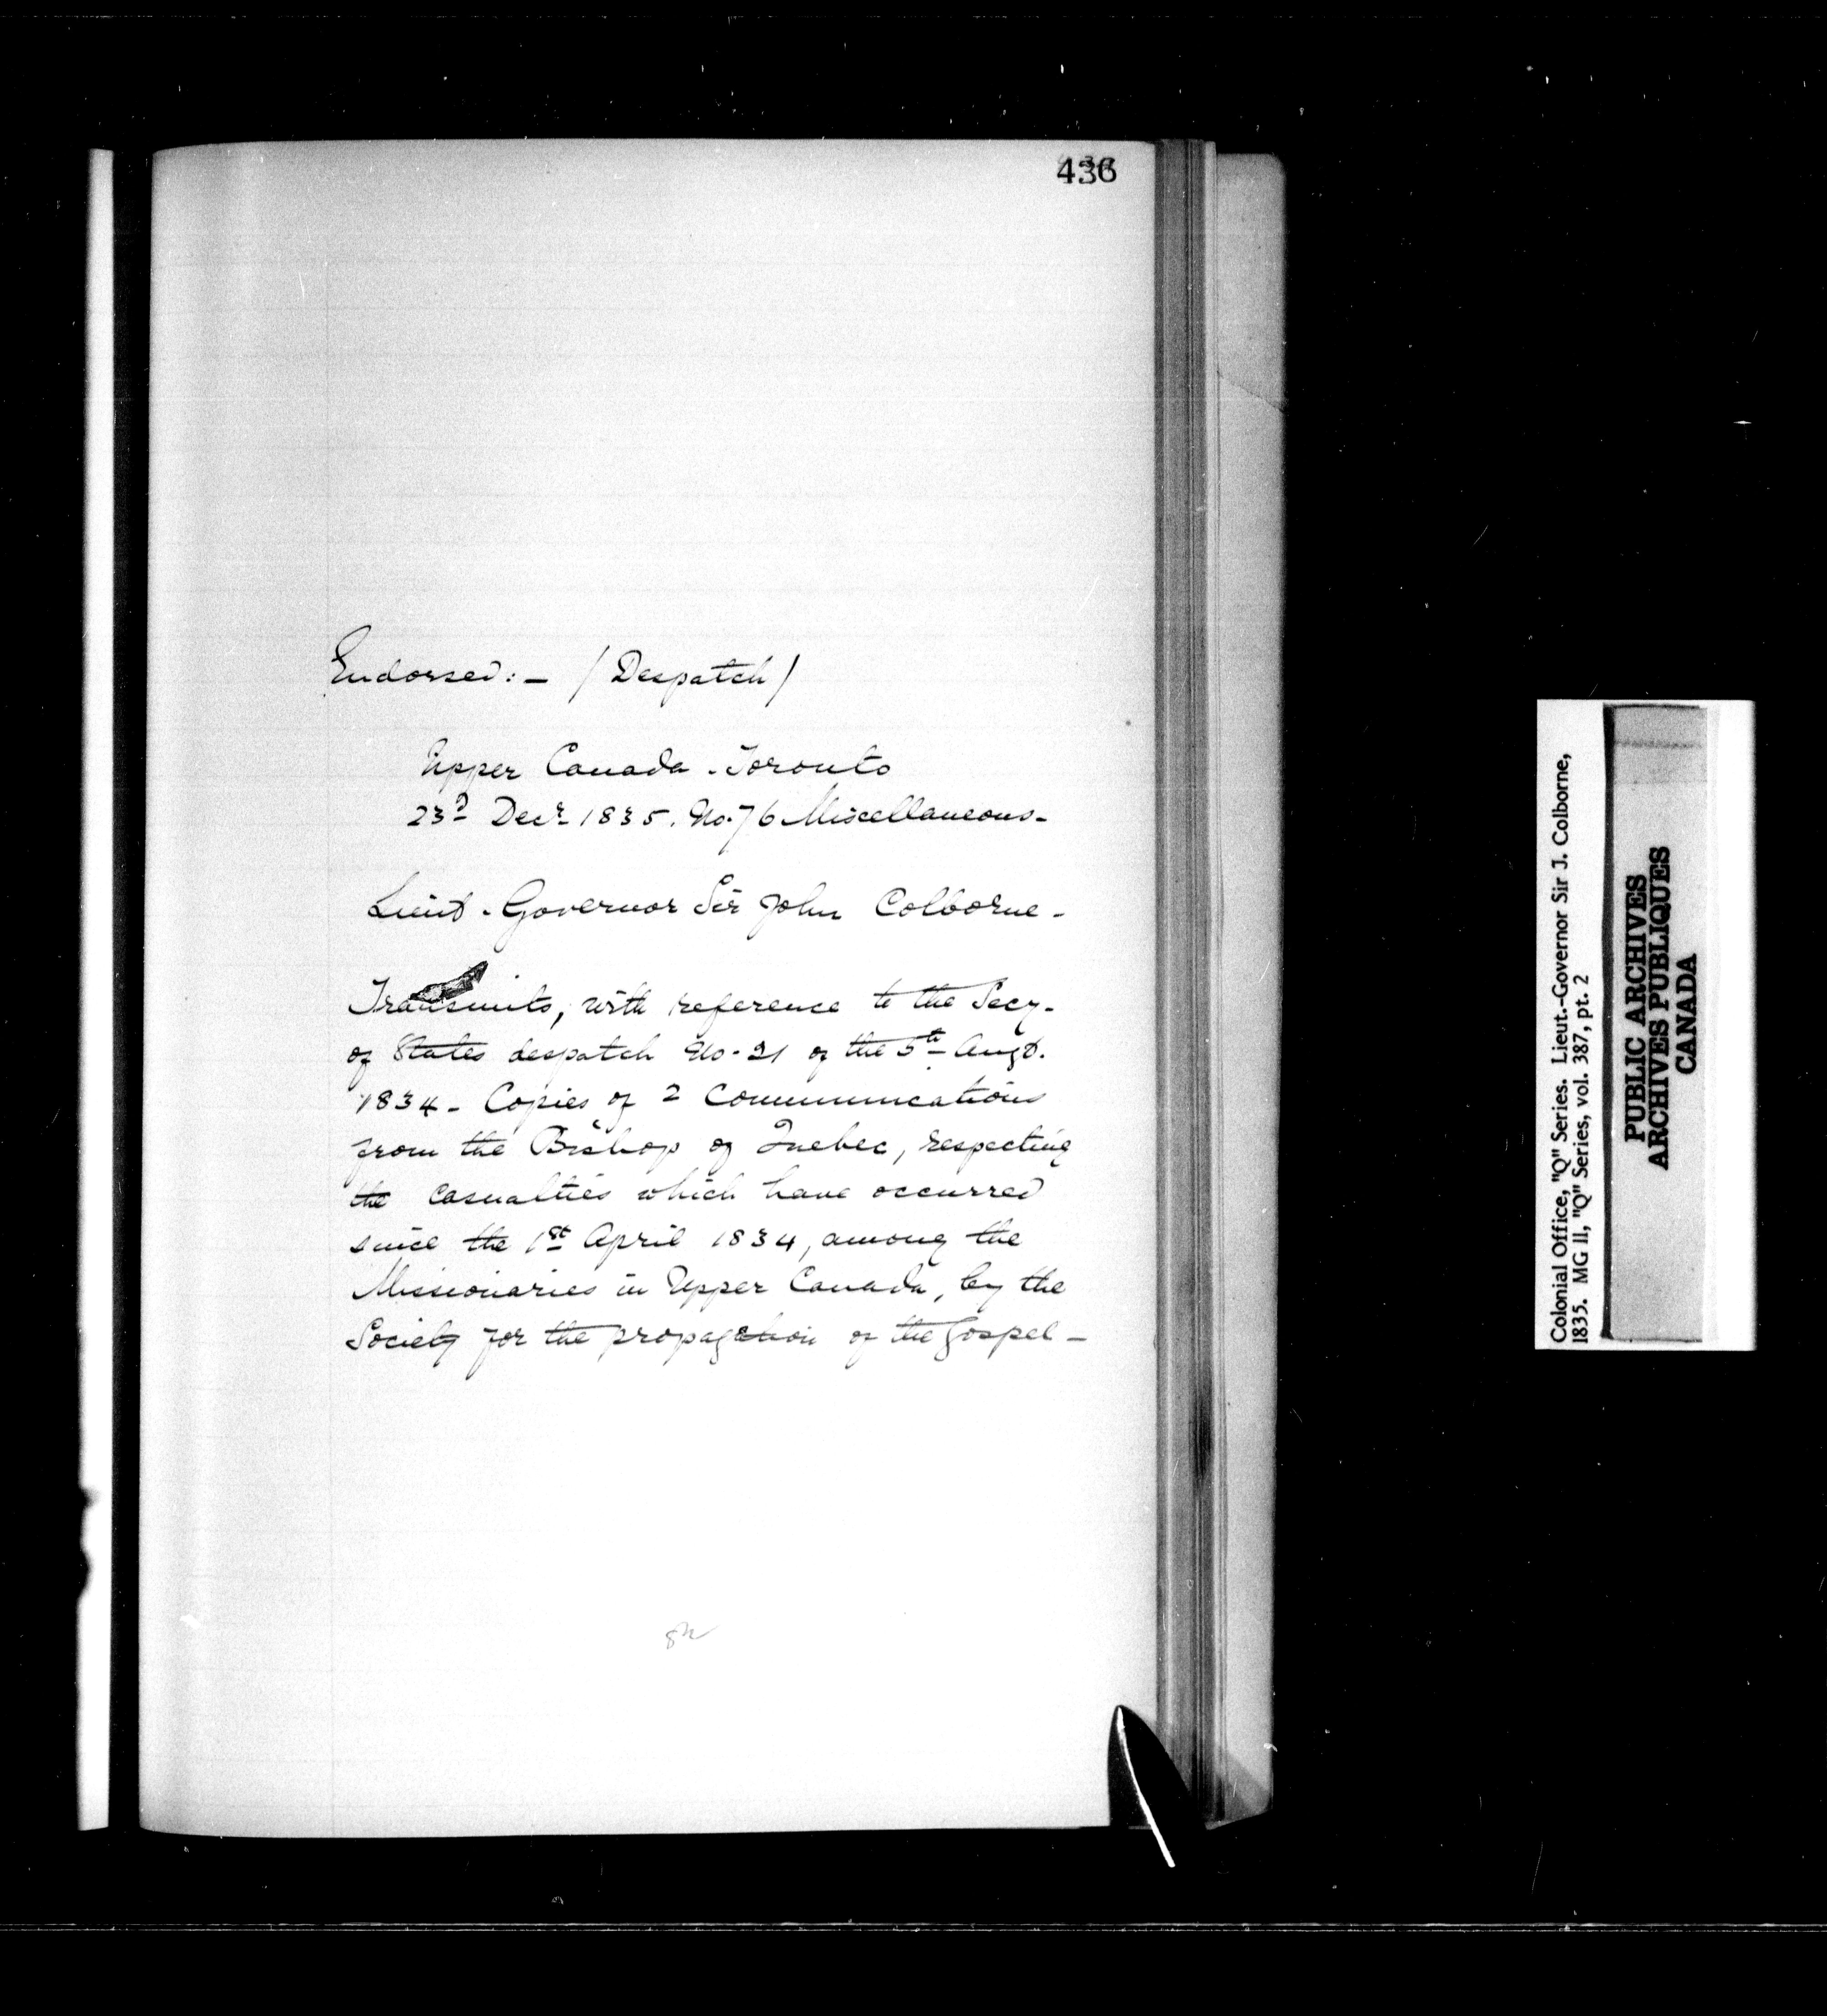 436
Endorsed:- / Despatch /
Upper Canada - Toronto
23d Decr 1835. No. 76 Miscellaneous -
Lieut - Governor Sir John Colborne -
Transmits, with reference to the Secy.
of States despatch No. 21 of the 5th Augt.
1834 - Copies of 2 Communications
from the Bishop of Quebec, respecting
the casualties which have occurred
since the 1st April 1834, among the
Missionaries in Upper Canada, by the
Society for the propagation of the Gospel -
Colonial Office, "Q" Series. Lieut.-Governor Sir J. Colborne,
1835. MG 11, "Q" Series, vol. 387, pt. 2
PUBLIC ARCHIVES
ARCHIVES PUBLIQUES
CANADA